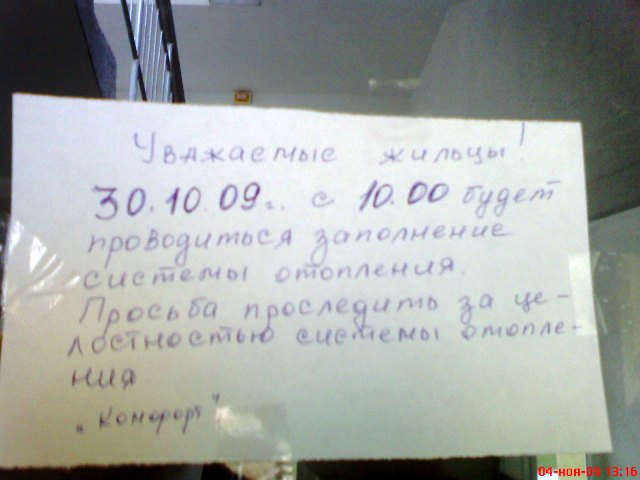 Уважаемые жильцы!
30.10.09г. с 10.00 будет
проводиться заполнение
системы отопления.
Просьба проследить за це-
лостностью системы отопле-
ния
„Комфорт"
04-ноя-09 13:16